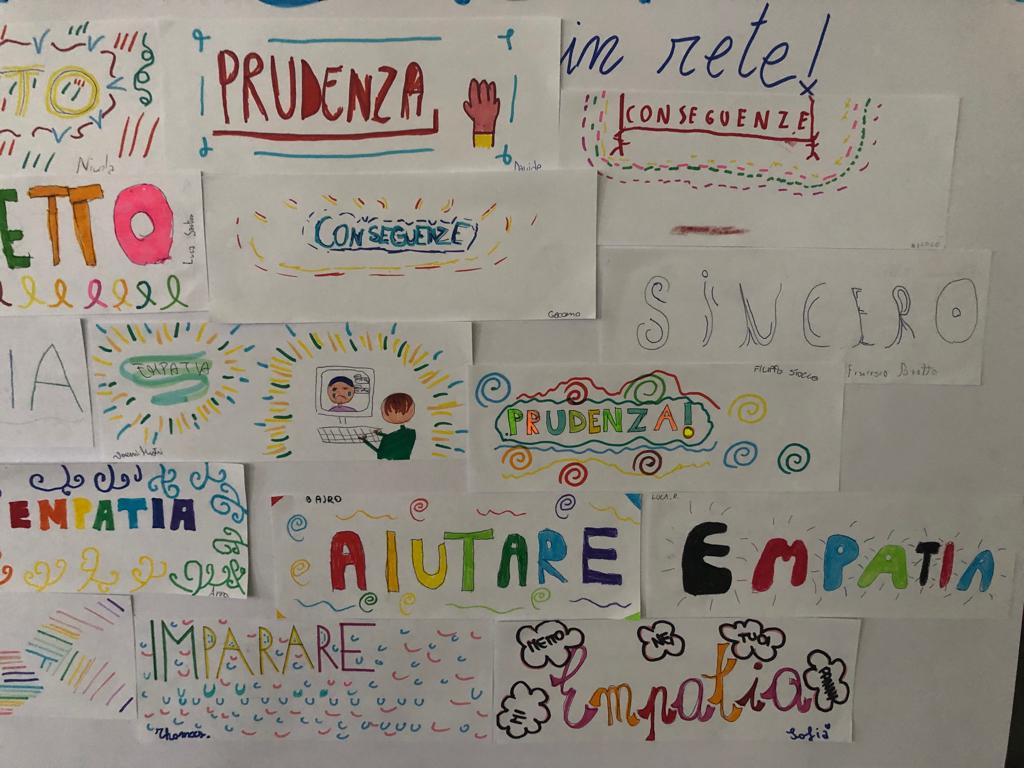 TO
Nicola
PRUDENZA
Davide
in rete!
CONSEGUENZE
ETTO
CONSEGUENZE
SINCERO
IA
EMPATIA
FILIPPO STOCCO
PRUDENZA!
EMPATIA
Anna
BAJRO
AIUTARE
LUCA.R.
EMPATIA
IMPARARE
Thomas.
METTO
NEI
TUOI
MI
Empatia
Sofia